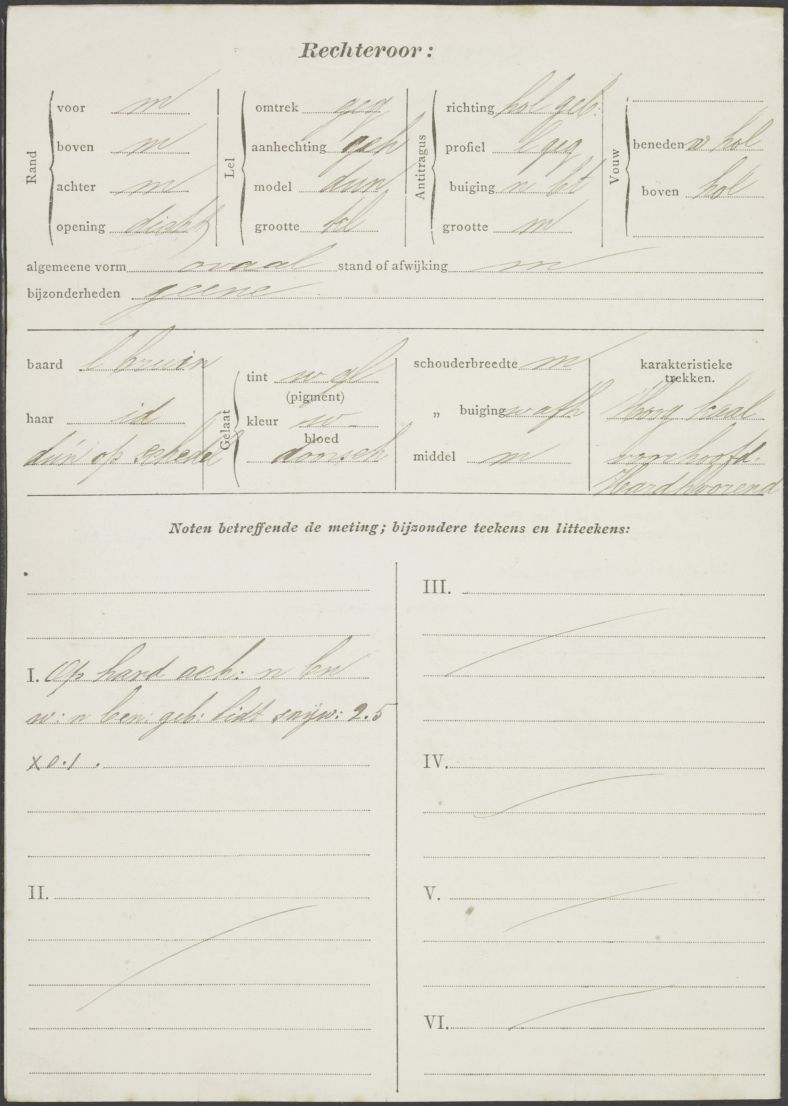 Rechteroor:
Rand
voor m
boven m
achter m
opening dicht
Lel
omtrek geg
aanhechting geh
model dun
grootte kl
Antitragus
richting hol geb:
profiel
buiging n
grootte m
Vouw
beneden w hol
boven hol
algemeene vorm ovaal stand of afwijking m
bijzonderheden geene
baard l bruin
haar id
dun op schedel
Gelaat
tint w gl
(pigment)
kleur w
bloed
donsch
schouderbreedte m
„ buiging w afh
middel m
karakteristieke
trekken.
Hoog kaal
voorhoofd.
Hardhoorend
Noten betreffende de meting; bijzondere teekens en litteekens:
I. Op hand ach: n bn
w: n ben: geb: lidt snijw: 2.5
x 0.1.
II.
III.
IV.
V.
VI.